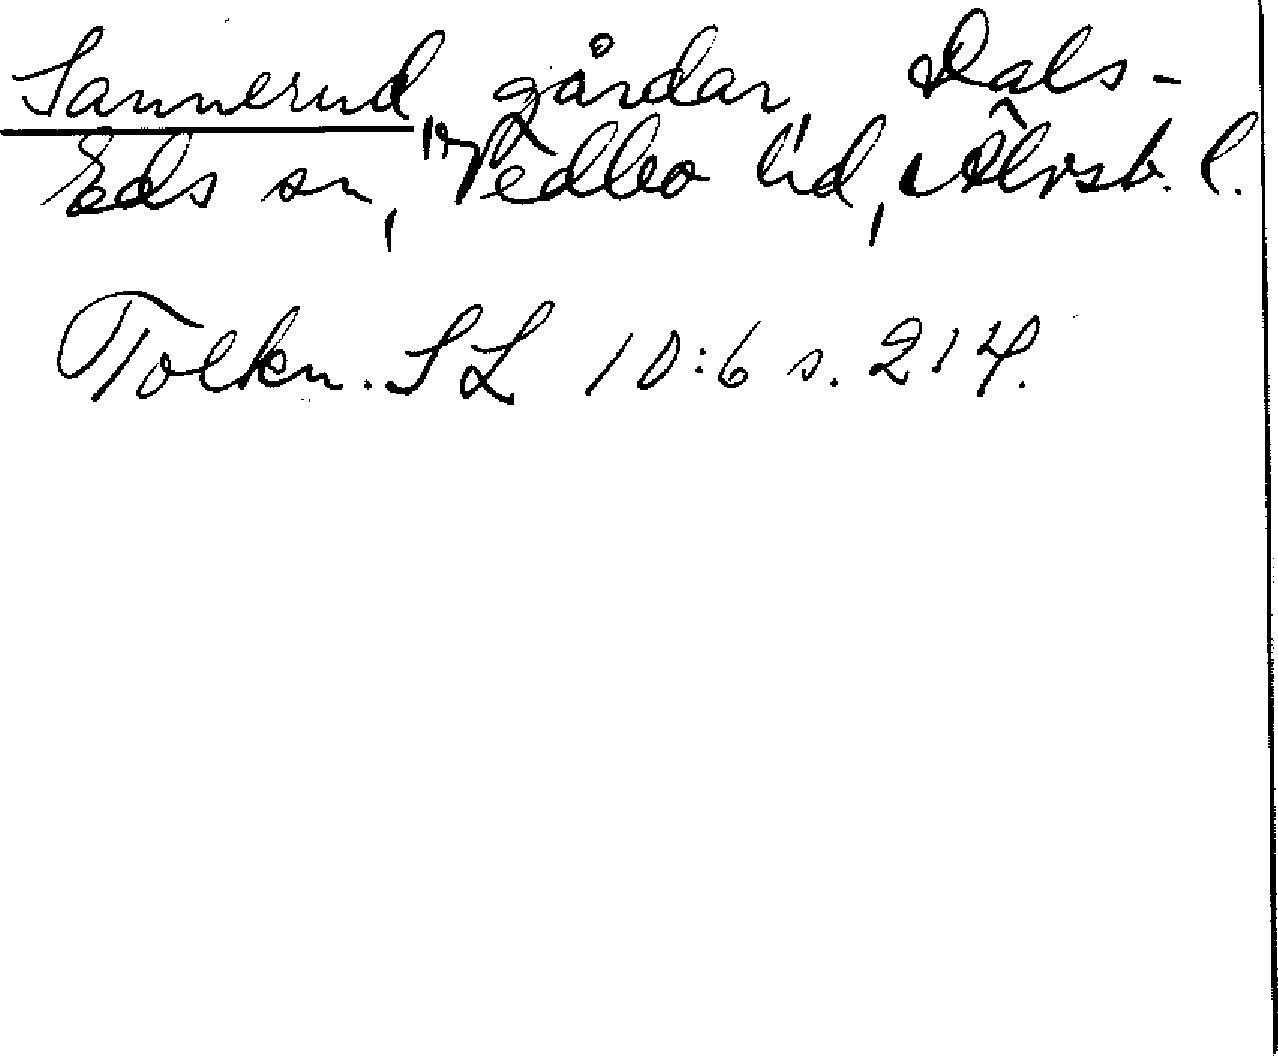 Sannerud, gårdar, Dals-
Eds sn, Vedbo hd, Älvsb. l.
Tolkn. SL 10:6 s. 214.